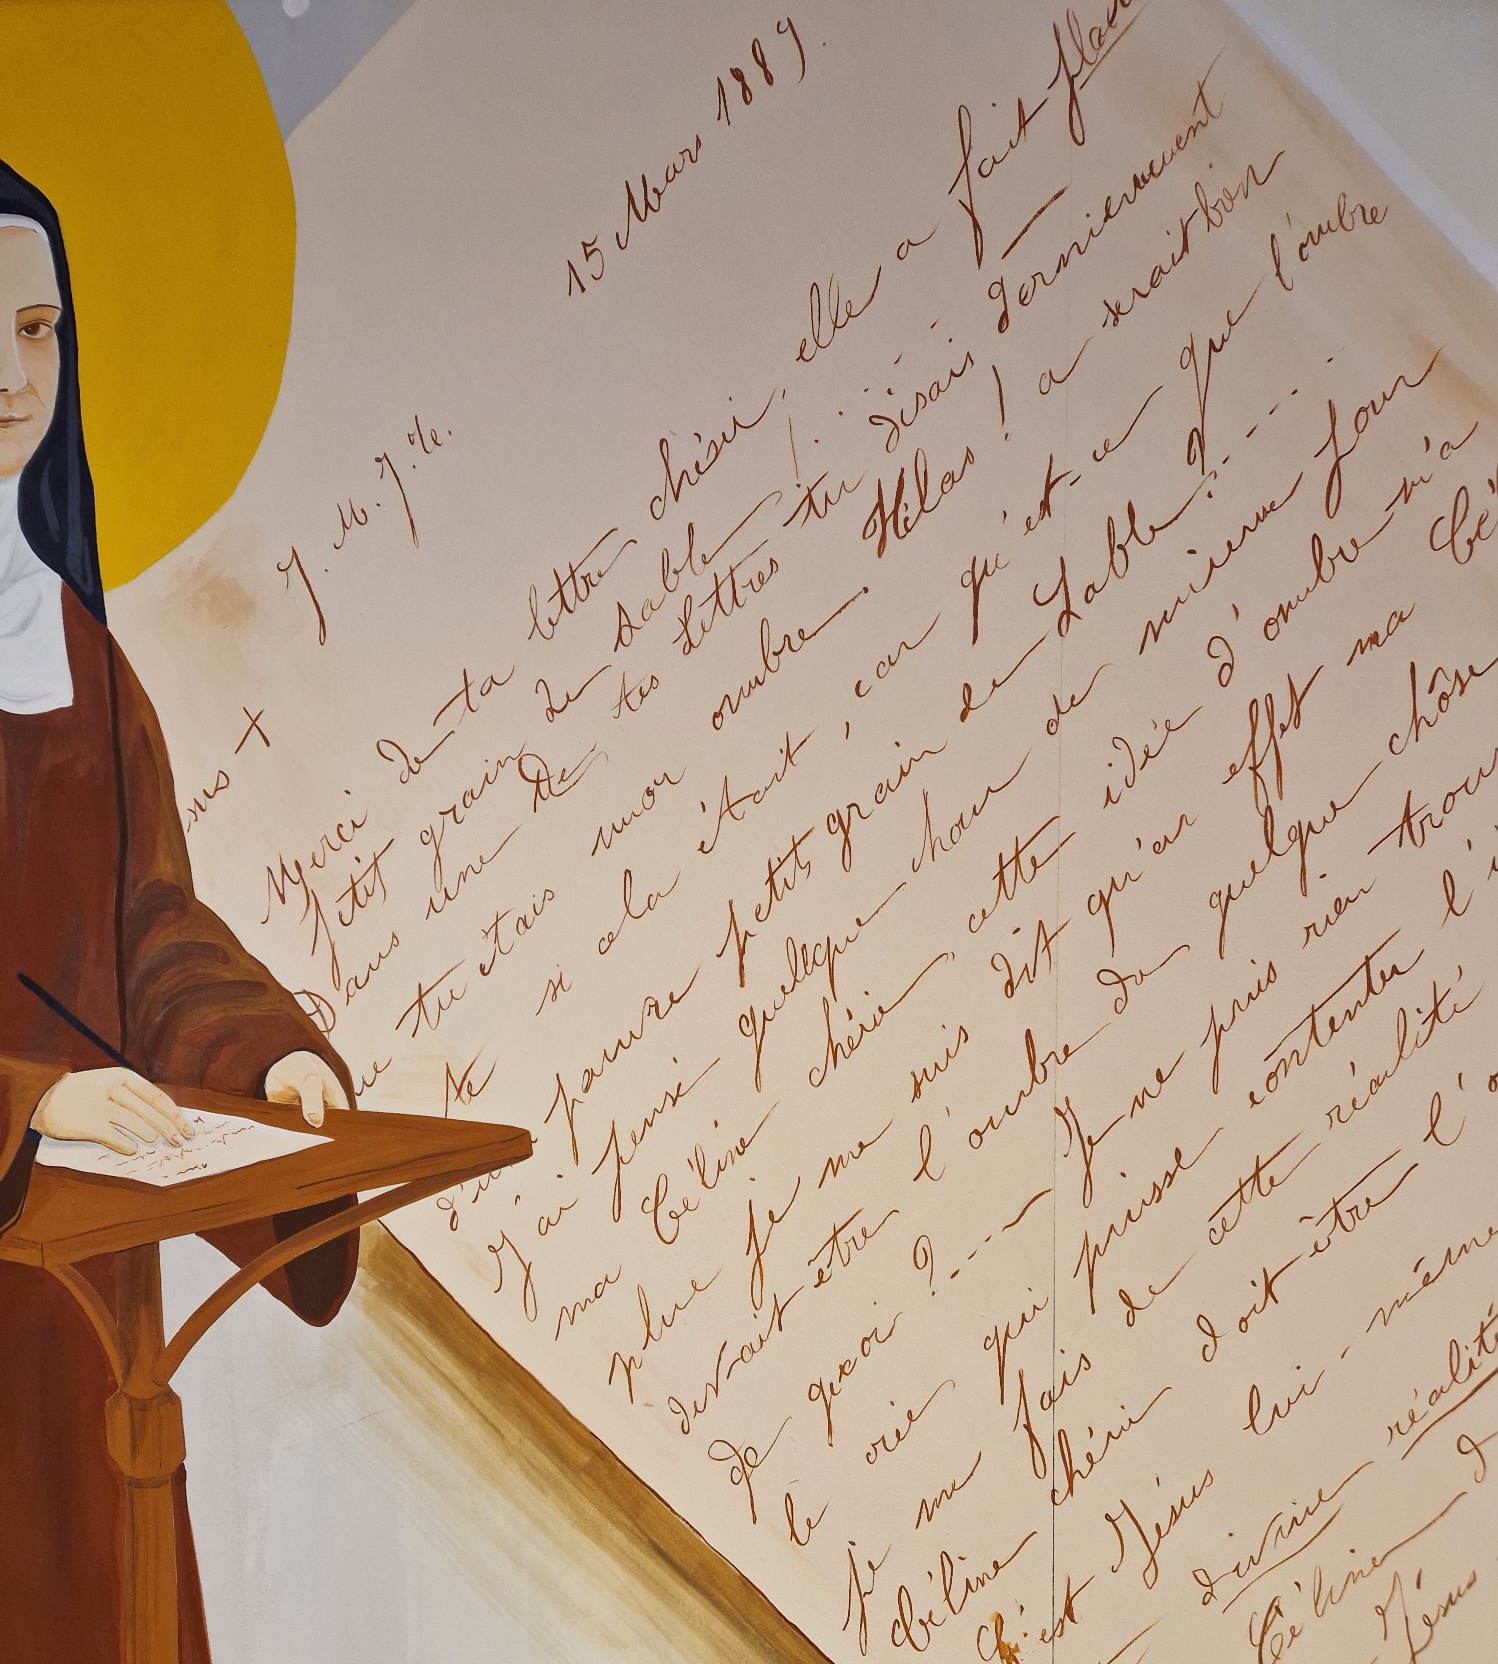 15 Mars 1889.
J. M. J. Te.
sus +
Merci de ta lettre chérie, elle a fait plai
petit grain de sable!
Dans une de tes Lettres tu disais dernièrement
que tu étais mon ombre. Hélas! a serait bon
si cela était, car qu'est-ce que l'ombre
te
d'un pauvre petits grain de Sable?
J'ai pensé quelque chose de mieux pour
ma Céline chérie, cette idée d'ombre m'a
plue je me suis dit qu'en effet ma Cé
devrait être l'ombre de quelque chôse
de quoi ? Je ne puis rien trouv
le créé qui puisse contenter l'i
je me fais de cette réalité
Céline chérie doit être l'o
C'est Jésus lui-même
divine réalité
Céline d
Jésus